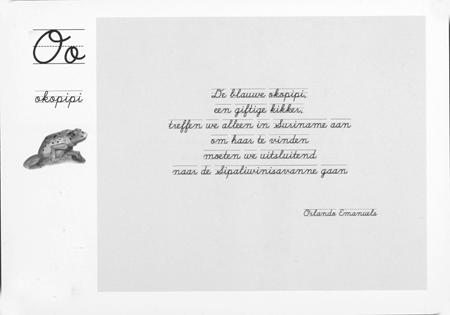 Oo
okopipi
De blauwe okopipi,
een giftige kikker,
treffen we alleen in Suriname aan
om haar te vinden
moeten we uitsluitend
naar de Sipaliwinisavanne gaan
Orlando Emanuels